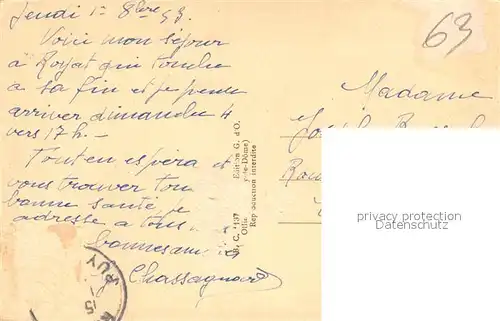 Jeudi 1er 8bre 53.
Voici mon séjour
à Royat qui touche
à sa fin et je pense
arriver dimanche 4
vers 17h. -
Tout en espérant
vous trouver tous
bonne santé je
adresse a tous
bonnes amitiés
Chassagnard
63
Madame
Edition G. d'O.
Reproduction interdite
privacy protection
Datenschutz
PUY
15